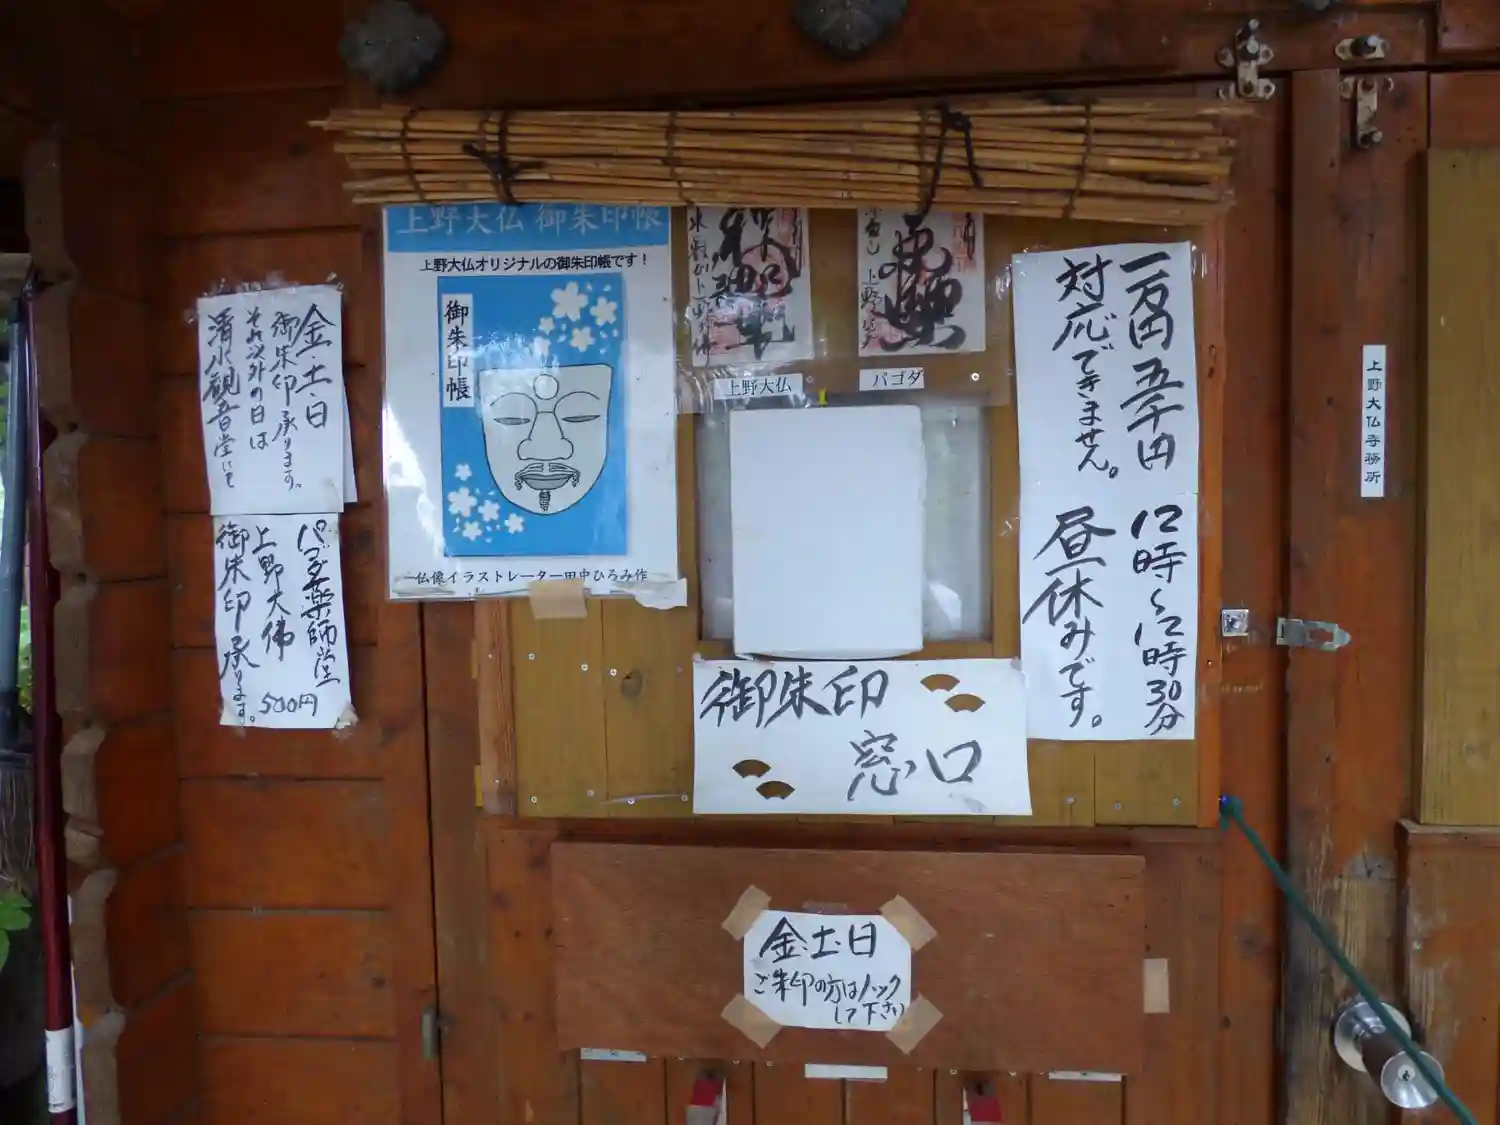 金・土・日
御朱印承ります。
それ以外の日は
清水観音堂にて
パゴダ薬師堂
上野大佛
御朱印承ります。
500円
上野大仏 御朱印帳
上野大仏オリジナルの御朱印帳です！
御朱印帳
仏像イラストレーター田中ひろみ作
上野大仏
パゴダ
一万円 五千円
対応できません。
12時〜12時30分
昼休みです。
御朱印
窓口
金・土・日
ご朱印の方はノック
して下さい
上野大仏寺務所